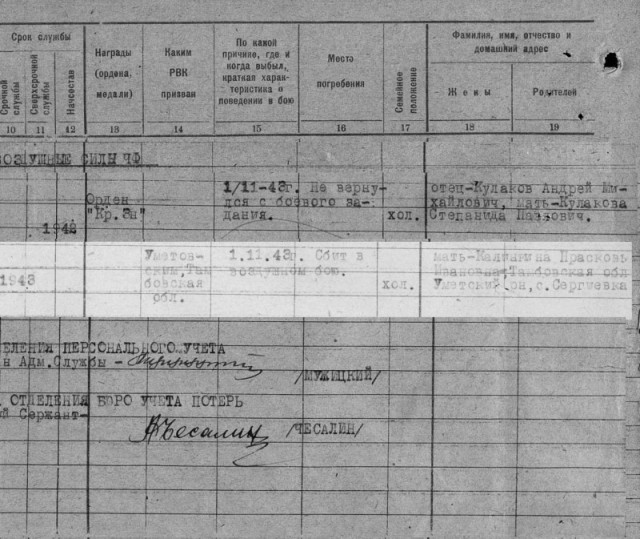 Срок службы
Срочной службы
Сверхсрочной службы
Начсостав
Награды (ордена, медали)
Каким РВК призван
По какой причине, где и когда выбыл, краткая характеристика о поведении в бою
Место погребения
Семейное положение
Фамилия, имя, отчество и домашний адрес
Жены
Родителей
10 11 12 13 14 15 16 17 18 19
ВОЗДУШНЫЕ СИЛЫ ЧФ
1942
Орден
"Кр.Зн"
1/11-43г. Не верну-
лся с боевого за-
дания.
хол.
отец-Кулаков Андрей Ми-
хайлович, мать-Кулакова
Степанида
1943
Уметов-
ским, Там
бовская
обл.
1.11.43г. Сбит в
воздушном бою.
хол.
мать-Калинкина Прасковь
Ивановна-Тамбовская обл
Уметский с. Сергиевка
ЕЛЕНИЯ ПЕРСОНАЛЬНОГО УЧЕТА
н Адм.Службы -
/МУЖИЦКИЙ/
ОТДЕЛЕНИЯ БЮРО УЧЕТА ПОТЕРЬ
й Сержант-
Чесалин
/ЧЕСАЛИН/